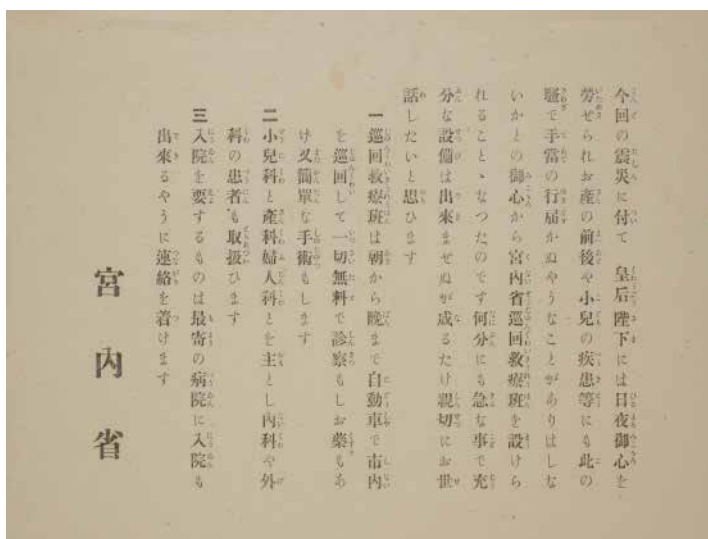 今回の震災に付て　皇后陛下には日夜御心を
勞せられお產の前後や小兒の疾患等にも此の
騷で手當の行屆かぬやうなことがありはしな
いかとの御心から宮內省巡回救療班を設けら
れることゝなつたのです何分にも急な事で充
分な設備は出來ませぬが成るたけ親切にお世
話したいと思ひます
一 巡回救療班は朝から晚まで自動車で市內
を巡回して一切無料で診察もしお藥もあ
げ又簡單な手術もします
二 小兒科と產科婦人科とを主とし內科や外
科の患者も取扱ひます
三 入院を要するものは最寄の病院に入院も
出來るやうに連絡を着けます
宮內省